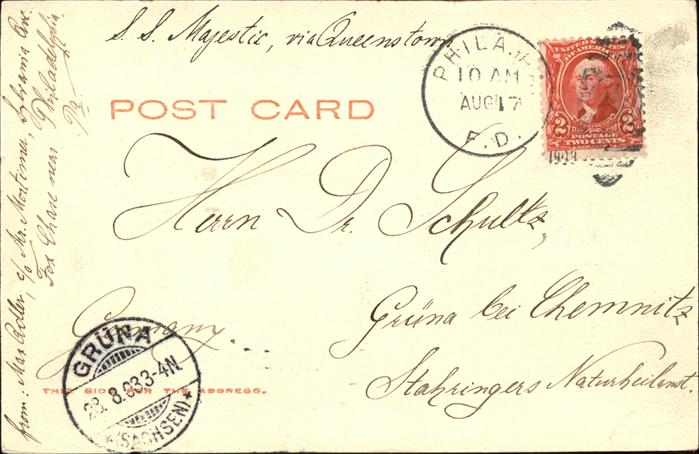 S. S. Majestic, via Queenstown
PHILA.
10 AM
AUG 17
P. D.
1903
UNITED STATES
OF AMERICA
2 2
POSTAGE
TWO CENTS
POST CARD
Herrn Dr. Schultz,
Grüna bei Chemnitz
Stahringers Naturheilanst
Germany
THIS SIDE FOR THE ADDRESS.
GRÜNA
28. 8. 03. 3-4N.
*(SACHSEN)*
from: Max Adler, c/o Mr. Mortema, Sylvania Ave.
Fox Chase near Philadelphia
Pa.